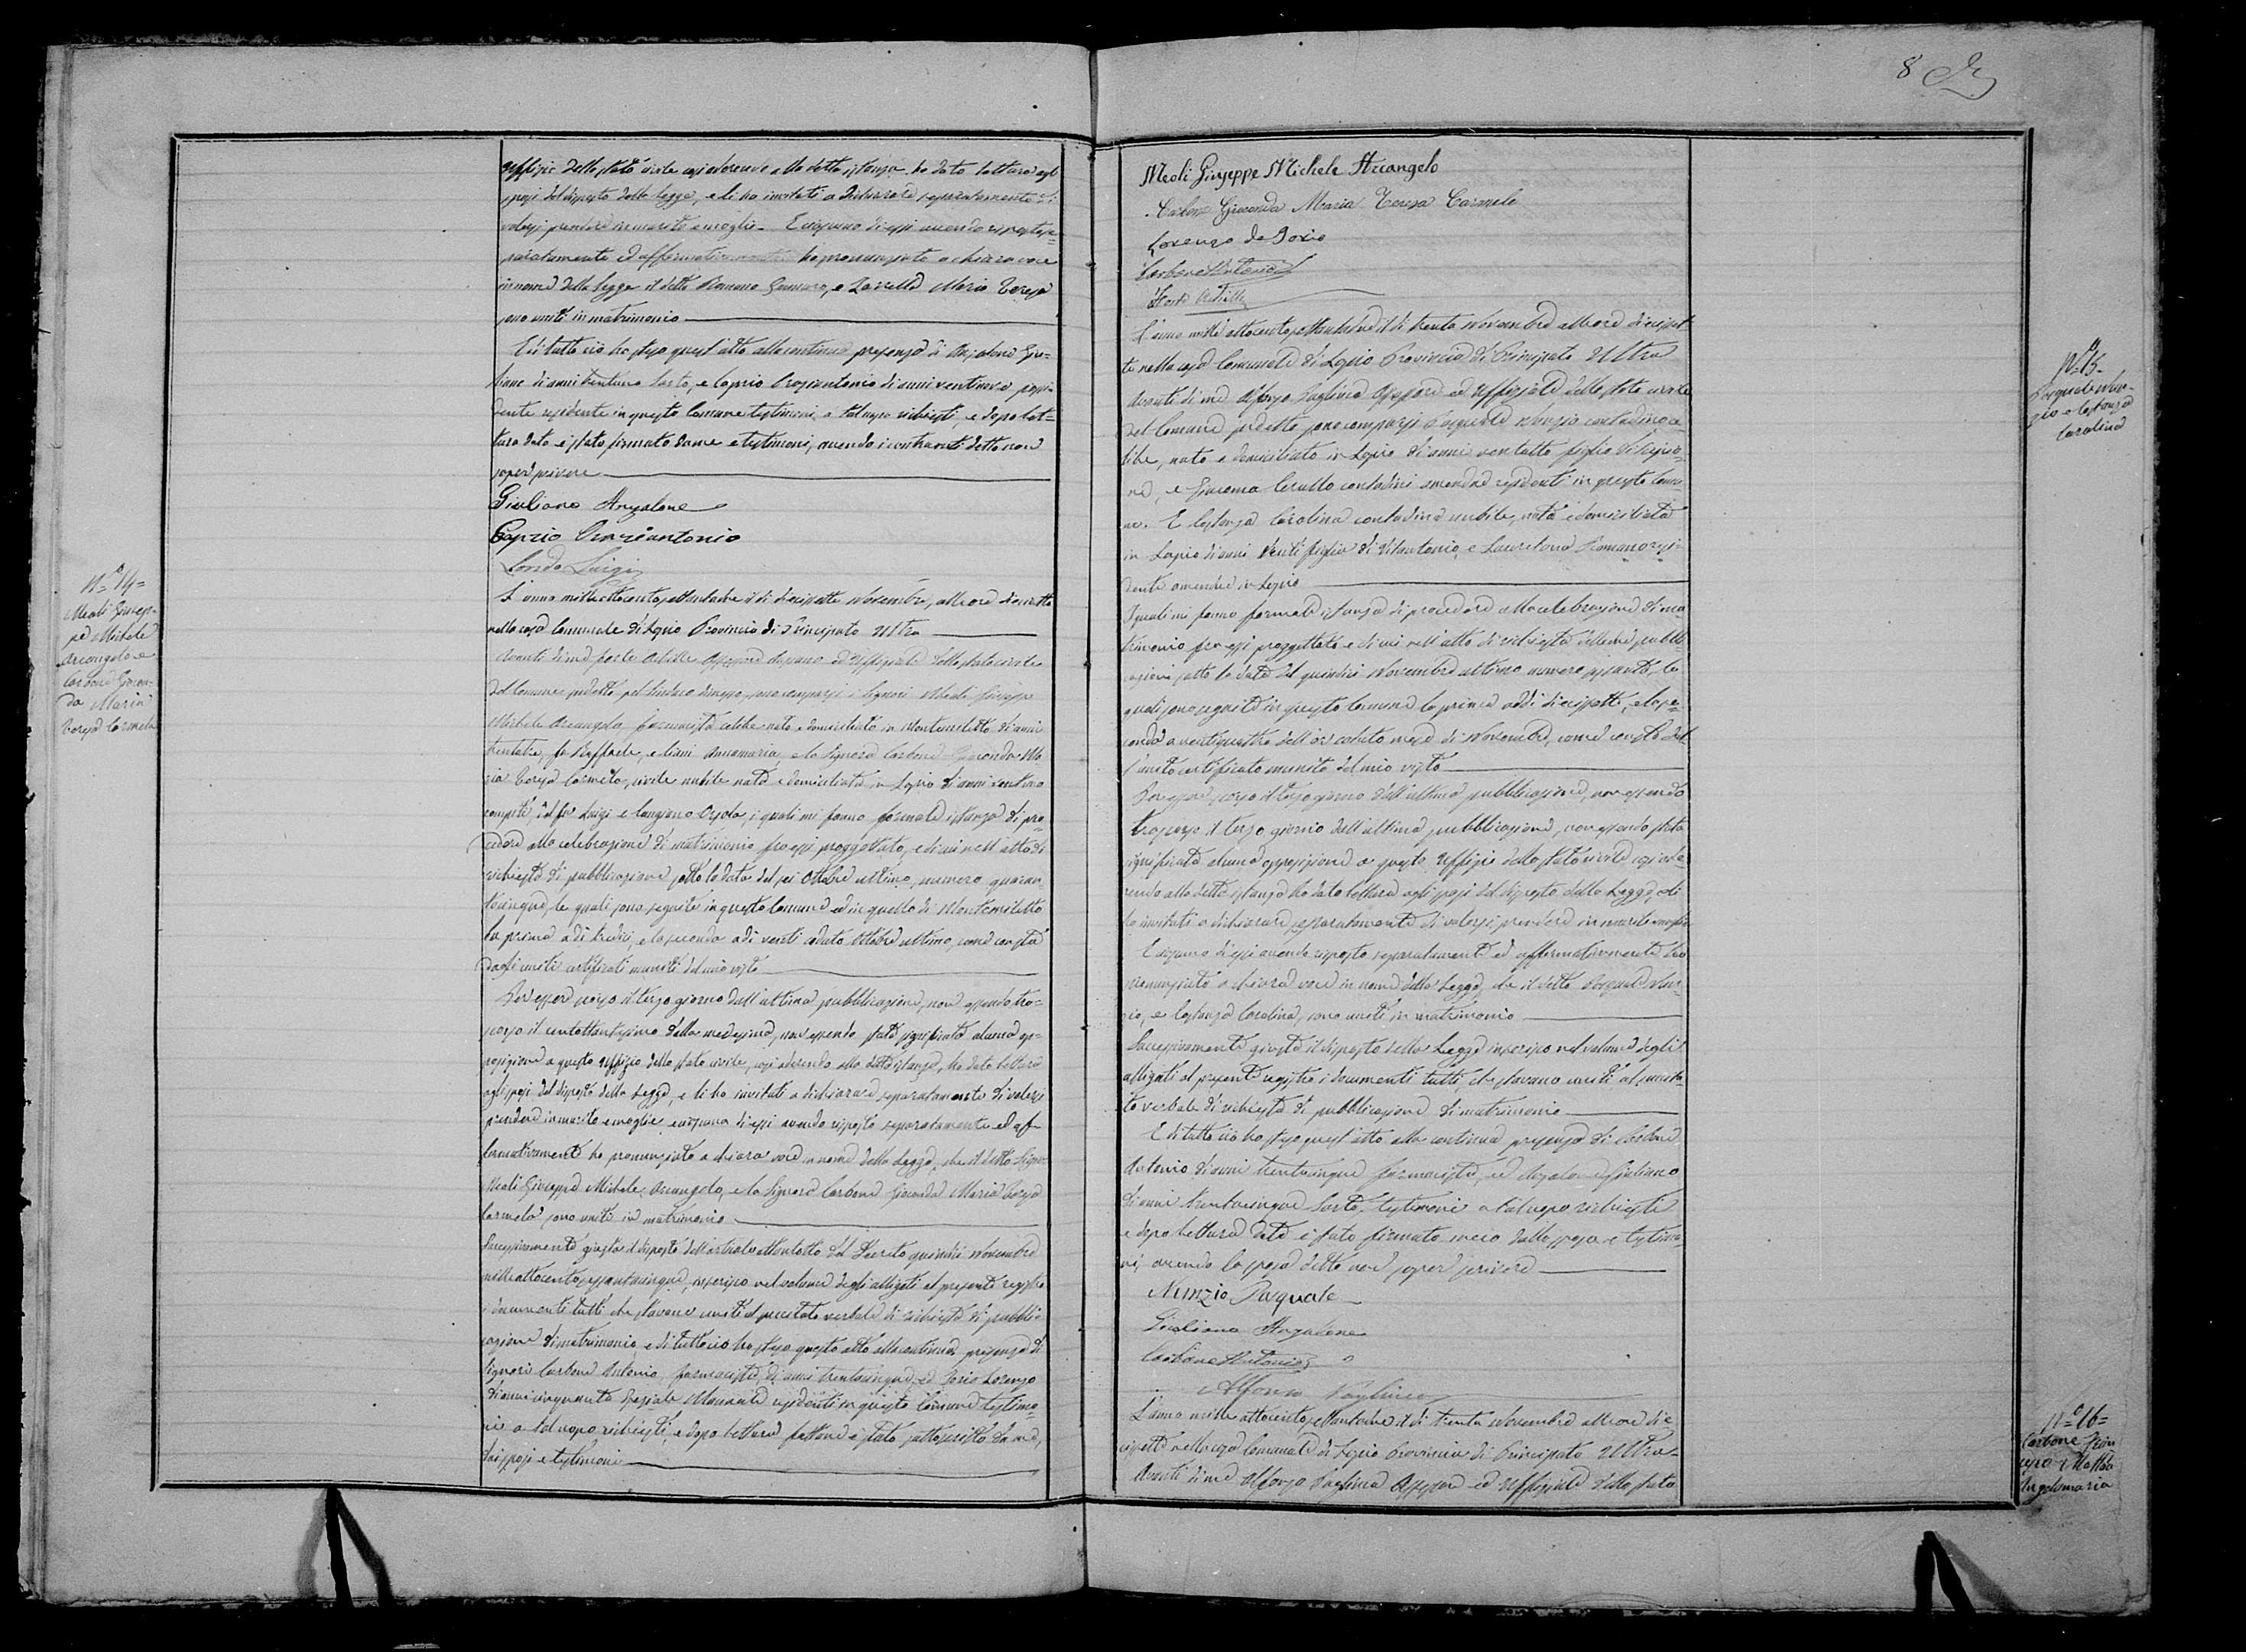 Uffizio dello stato civile così aderendo alla detta istanza ho dato lettura agli
sposi del disposto della Legge, e li ho invitati a dichiarare separatamente di
volersi prendere in marito e moglie. E ciascuno di essi avendo risposto se=
paratamente ed affermativamente ho pronunziato a chiara voce
in nome della Legge il detto Romano Gennaro, e Maria Teresa
sono uniti in matrimonio
E di tutto ciò ho steso quest'atto alla continua presenza di Angelone Giu=
liano di anni trentuno Sarto, e Caprio Oraziantonio di anni ventinove possi=
dente residente in questo Comune testimoni a tal uopo richiesti, e dopo let=
tura dato è stato firmato da me e testimoni, avendo i contraenti detto non
saper scrivere
Giuliano Angelone
Caprio Oraziantonio
Luigi
N.° 14=
Meoli Giusep=
pe Michele
Arcangelo e
Carbone Giocon=
da Maria
Teresa Carmela
L'anno mille ottocento settantadue il dì diciassette Novembre, alle ore diciotto
nella casa Comunale di Lapio Provincia di Principato Ultra
Avanti di me Achille Assessore anziano ed Uffiziale dello stato civile
del Comune predetto pel Sindaco sono comparsi i Signori Meoli Giuseppe
Michele Arcangelo farmacista celibe nato e domiciliato in Montemiletto di anni
fu Raffaele, e Annamaria, e la Signora Carbone Gioconda Ma
ria Teresa Carmela, civile nubile nata e domiciliata in Lapio di anni ventuno
compiti, del fu Luigi e i quali mi fanno formale istanza di pro=
cedere alla celebrazione di matrimonio fra essi progettato, e di cui nell'atto di
richiesta di pubblicazione sotto la data del sei Ottobre ultimo, numero quaran=
tacinque, le quali sono seguite in questo Comune ed in quello di Montemiletto
la prima a dì tredici, e la seconda a dì venti caduto Ottobre ultimo, come consta
dagli uniti certificati muniti del mio visto
Per essere scorso il terzo giorno dall'ultima pubblicazione, non essendo tra=
scorso il centottantesimo dalla medesima, non essendo stata significata alcuna op=
posizione a questo Uffizio dello stato civile, così aderendo alla detta istanza, ho dato lettura
agli sposi del disposto della Legge, e li ho invitati a dichiarare separatamente di volersi
prendere in marito e moglie e ciascuno di essi avendo risposto separatamente ed af=
fermativamente ho pronunziato a chiara voce in nome della Legge, che il detto Signor
Meoli Giuseppe Michele Arcangelo, e la Signora Carbone Gioconda Maria Teresa
Carmela sono uniti in matrimonio
Successivamente giusta il disposto dell'articolo settantotto del Decreto quindici Novembre
mille ottocento sessantacinque, inserisco nel volume degli alligati al presente registro
i documenti tutti che stavano uniti al precitato verbale di richiesta di pubbli=
cazione di matrimonio e di tutto ciò ho steso questo atto alla continua presenza di
Signori Carbone Antonio farmacista, di anni trentacinque, ed Iorio Lorenzo
di anni cinquanta residenti in questo Comune testimo=
ni a tal uopo richiesti, e dopo lettura fattane è stato sottoscritto da me,
dai sposi e testimoni
8
Meoli Giuseppe Michele Arcangelo
Carbone Gioconda Maria Teresa Carmela
Lorenzo de Iorio
Carbone Antonio
Achille
N.° 15=
Pasquale Nun=
zio e Costanza
Carolina
L'anno mille ottocento settantadue il dì trenta Novembre alle ore diciasset
te nella casa Comunale di Lapio Provincia di Principato Ultra
Avanti di me Alfonso Assessore ed Uffiziale dello stato civile
del Comune predetto sono comparsi Pasquale Nunzio contadino ce
libe, nato e domiciliato in Lapio di anni ventotto figlio di Scipio=
ne, e Giacoma Cerullo contadini amendue residenti in questo Comu
ne. E Costanza Carolina contadina nubile, nata e domiciliata
in Lapio di anni venti figlia di Vitantonio, e Lauretana Romano resi=
denti amendue in Lapio
I quali mi fanno formale istanza di procedere alla celebrazione di ma
trimonio fra essi progettato e di cui nell'atto di richiesta delle due pubbli
cazioni sotto la data del quindici Novembre ultimo numero le
quali sono seguite in questo Comune la prima addì diciassette, e la se=
conda a ventiquattro dell'or caduto mese di Novembre, come consta dal
l'unito certificato munito del mio visto
Per essere scorso il terzo giorno dall'ultima pubblicazione, non essendo
trascorso il terzo giorno dall'ultima pubblicazione, non essendo stata
significata alcuna opposizione a questo Uffizio dello stato civile così ade
rendo alla detta istanza ho dato lettura agli sposi del disposto della Legge, e li
ho invitati a dichiarare separatamente di volersi prendere in marito e moglie
E ciascuno di essi avendo risposto separatamente ed affermativamente ho
pronunziato a chiara voce in nome della Legge, che il detto Pasquale Nun=
zio, e Costanza Carolina, sono uniti in matrimonio
Successivamente giusta il disposto della Legge inserisco nel volume degli
alligati al presente registro i documenti tutti, che stavano uniti al precita=
to verbale di richiesta di pubblicazione di matrimonio
E di tutto ciò ho steso quest'atto alla continua presenza di Carbone
Antonio di anni trentacinque farmacista, ed Angelone Giuliano
di anni trentacinque Sarto, testimoni a tal uopo richiesti
e dopo lettura data è stato firmato meco dallo sposo e testimo=
ni, avendo la sposa detto non saper scrivere
Nunzio Pasquale
Giuliano Angelone
Carbone Antonio
Alfonso
N.° 16=
Carbone
e Mattia
Angelamaria
L'anno mille ottocento settantadue il dì trenta Novembre alle ore di=
ciasette nella casa Comunale di Lapio Provincia di Principato Ultra=
Avanti di me Alfonso Assessore ed Uffiziale dello stato